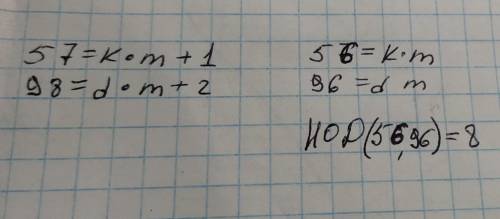 57=k·m+1
98=d·m+2
56=k·m
96=d m
НОД(56,96)=8